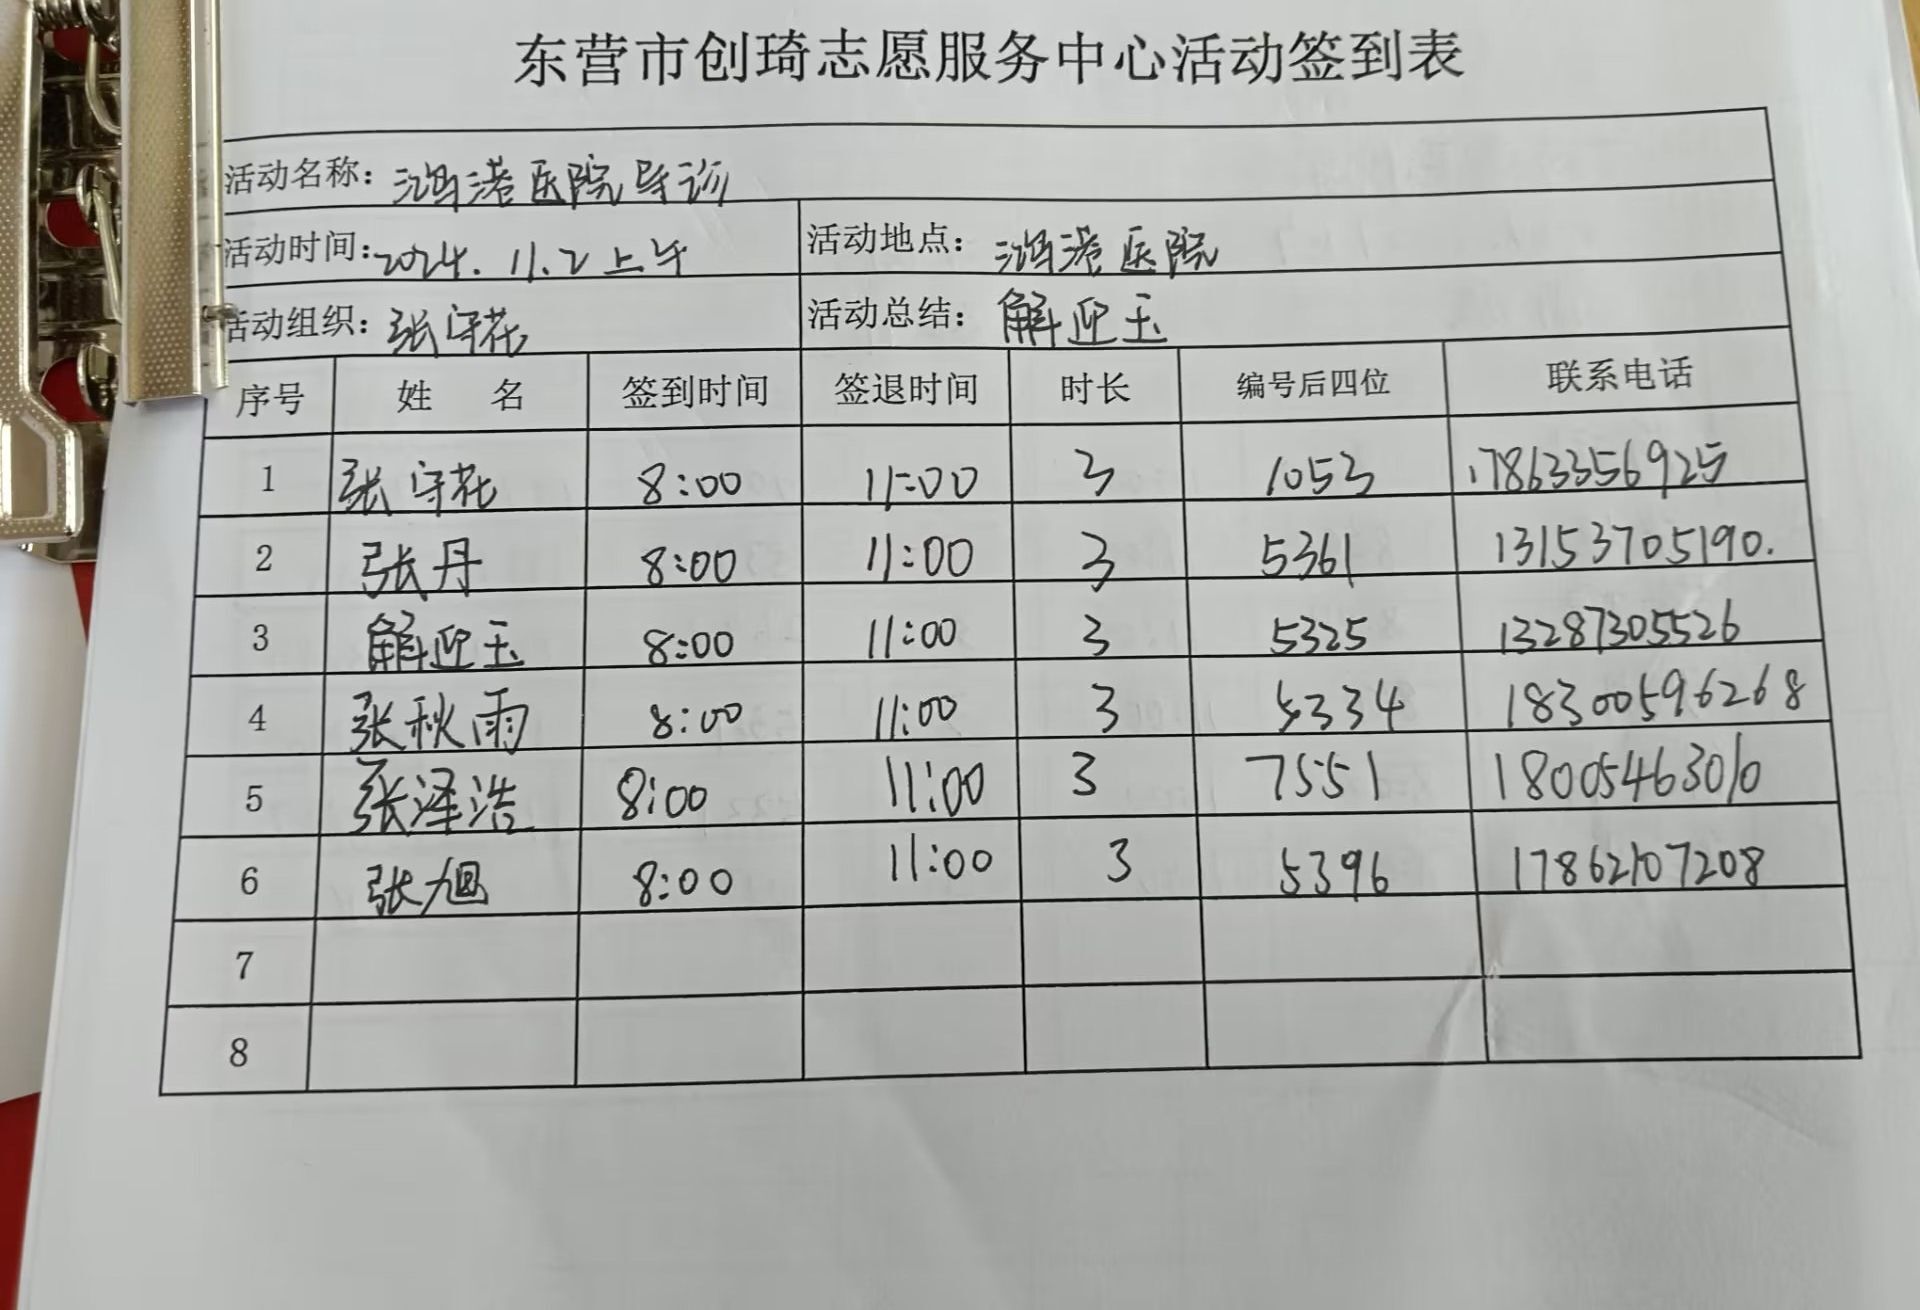 东营市创琦志愿服务中心活动签到表
活动名称：鸿港医院导诊
活动时间：2024.11.2上午 活动地点：鸿港医院
活动组织：张守花 活动总结：解迎玉
序号 姓 名 签到时间 签退时间 时长 编号后四位 联系电话
1 张守花 8:00 11:00 3 1053 17863356925
2 张丹 8:00 11:00 3 5361 13153705190.
3 解迎玉 8:00 11:00 3 5325 13287305526
4 张秋雨 8:00 11:00 3 5334 18300596268
5 张泽浩 8:00 11:00 3 7551 18005463010
6 张旭 8:00 11:00 3 5396 17862107208
7
8